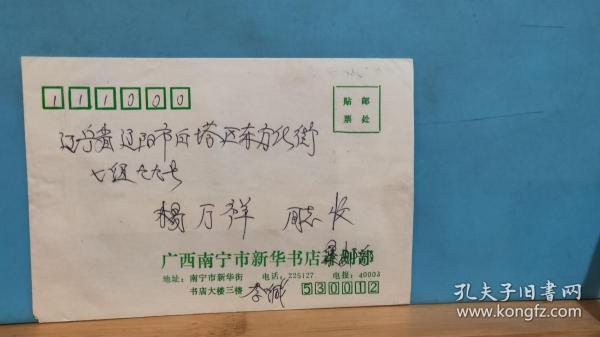 111000
贴 邮
票 处
辽宁省辽阳市白塔区东方红街
七组
杨万祥 同志 收
广西南宁市新华书店 邮部
地址：南宁市新华街 电话：225127 电报：40003
书店大楼三楼 李 530012
孔夫子旧书网
www.kongfz.com